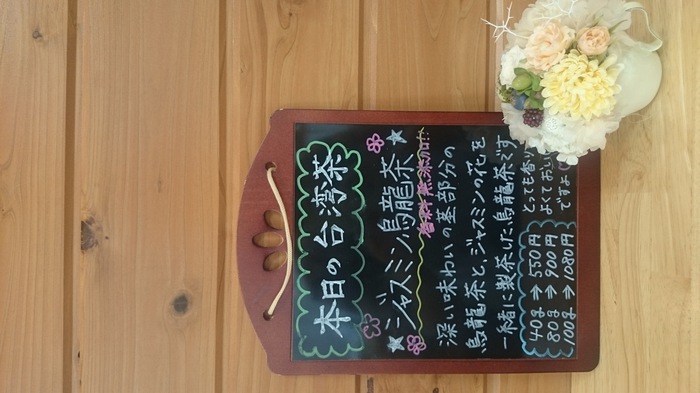 本日の台湾茶
ジャスミン烏龍茶
香料無添加!!
深い味わいの茎部分の
烏龍茶と、ジャスミンの花を
一緒に製茶した烏龍茶です
とっても香り
よくておい
ですよ
40g ⇒ 550円
80g ⇒ 900円
100g ⇒ 1080円